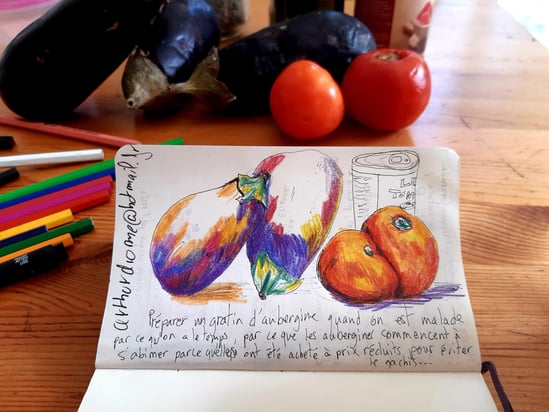 arthurdrome@hotmail.fr
Préparer un gratin d'aubergine quand on est malade
par ce qu'on a le temps, par ce que les aubergines commencent à
s'abimer parce qu'elles ont été acheté à prix réduits pour éviter
le gachis...